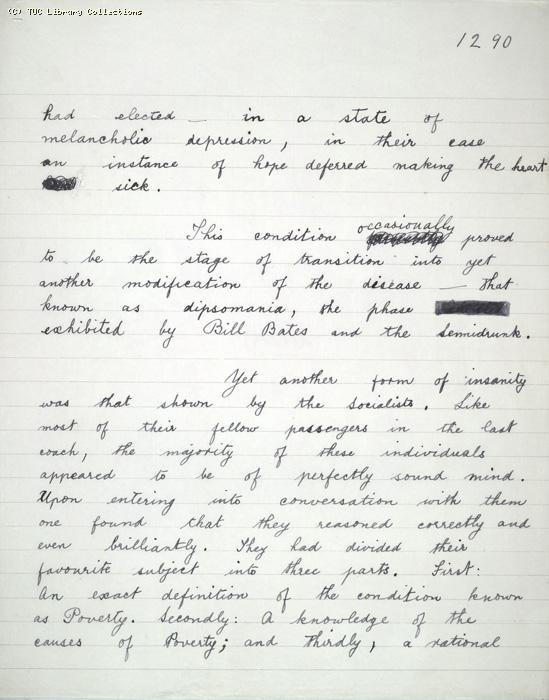 (C) TUC Library Collections
1290
had elected — in a state of
melancholic depression, in their case
an instance of hope deferred making the heart
sick.
This condition occasionally proved
to be the stage of transition into yet
another modification of the disease — that
known as dipsomania, the phase
exhibited by Bill Bates and the Semidrunk.
Yet another form of insanity
was that shown by the Socialists. Like
most of their fellow passengers in the last
coach, the majority of these individuals
appeared to be of perfectly sound mind.
Upon entering into conversation with them
one found that they reasoned correctly and
even brilliantly. They had divided their
favourite subject into three parts. First:
An exact definition of the condition known
as Poverty. Secondly: A knowledge of the
causes of Poverty; and thirdly, a rational